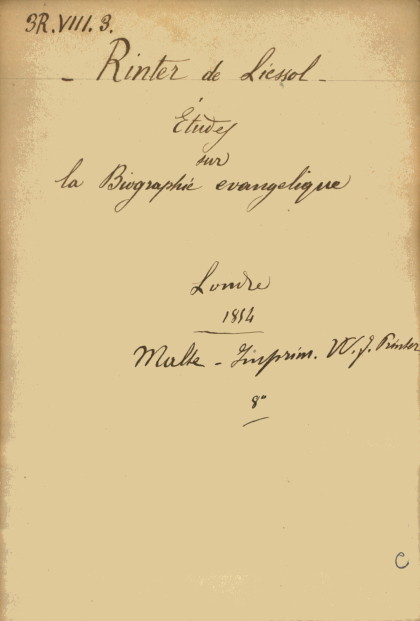 3R.VIII.3.
- Rinter de Liessol -
Études
sur
la Biographie evangelique
Londre
1854
Malte - Imprim. W. J. Printer
8°
C